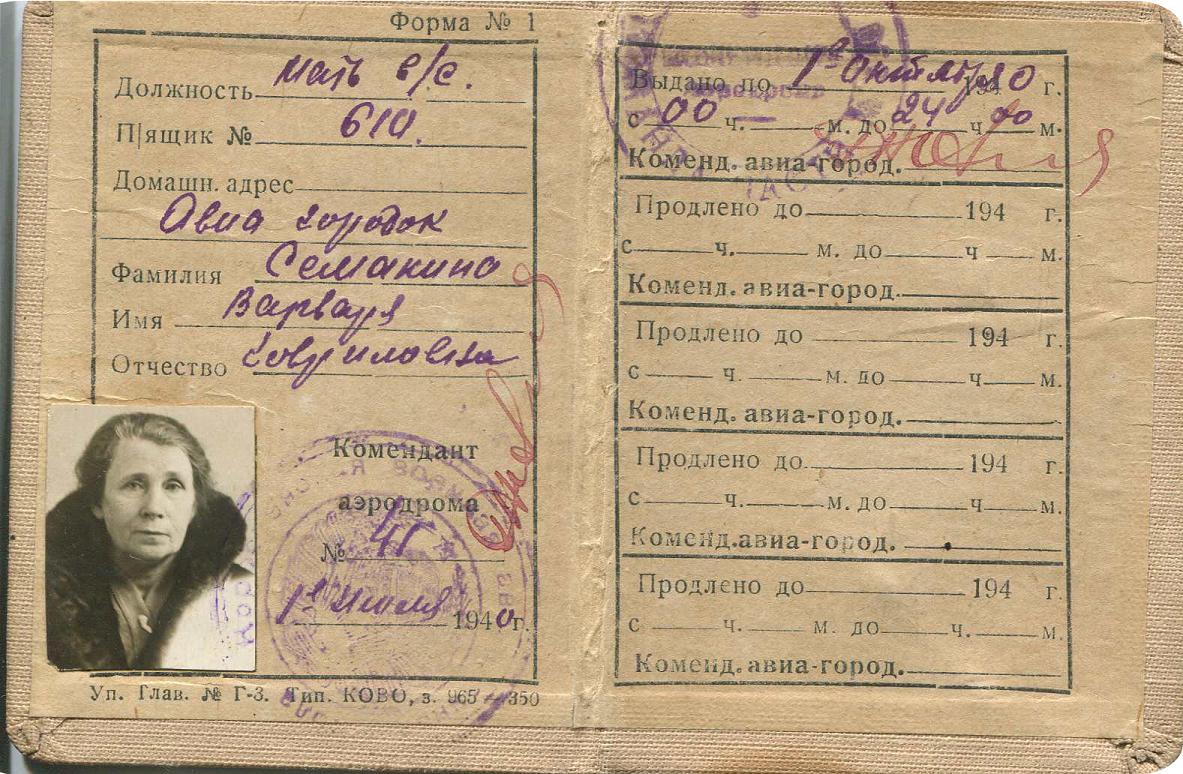 Форма № 1
Должность мать в/с.
П|ящик № 610.
Домашн. адрес
Авиа городок
Фамилия Семакина
Имя Варвара
Отчество Гавриловна
Комендант
аэродрома
№ 41
1го Июля 1940 г.
Уп. Глав. № Г-3. Тип. КОВО, з. 965—350
Выдано по 1е Октября 1940 г.
с 00 ч. м. до 24 ч 00 м.
Коменд. авиа-город.
Продлено до 194 г.
с ч. м. до ч м.
Коменд. авиа-город.
Продлено до 194 г.
с ч. м. до ч м.
Коменд. авиа-город.
Продлено до 194 г.
с ч. м. до ч м.
Коменд.авиа-город.
Продлено до 194 г.
с ч. м. до ч. м.
Коменд. авиа-город.